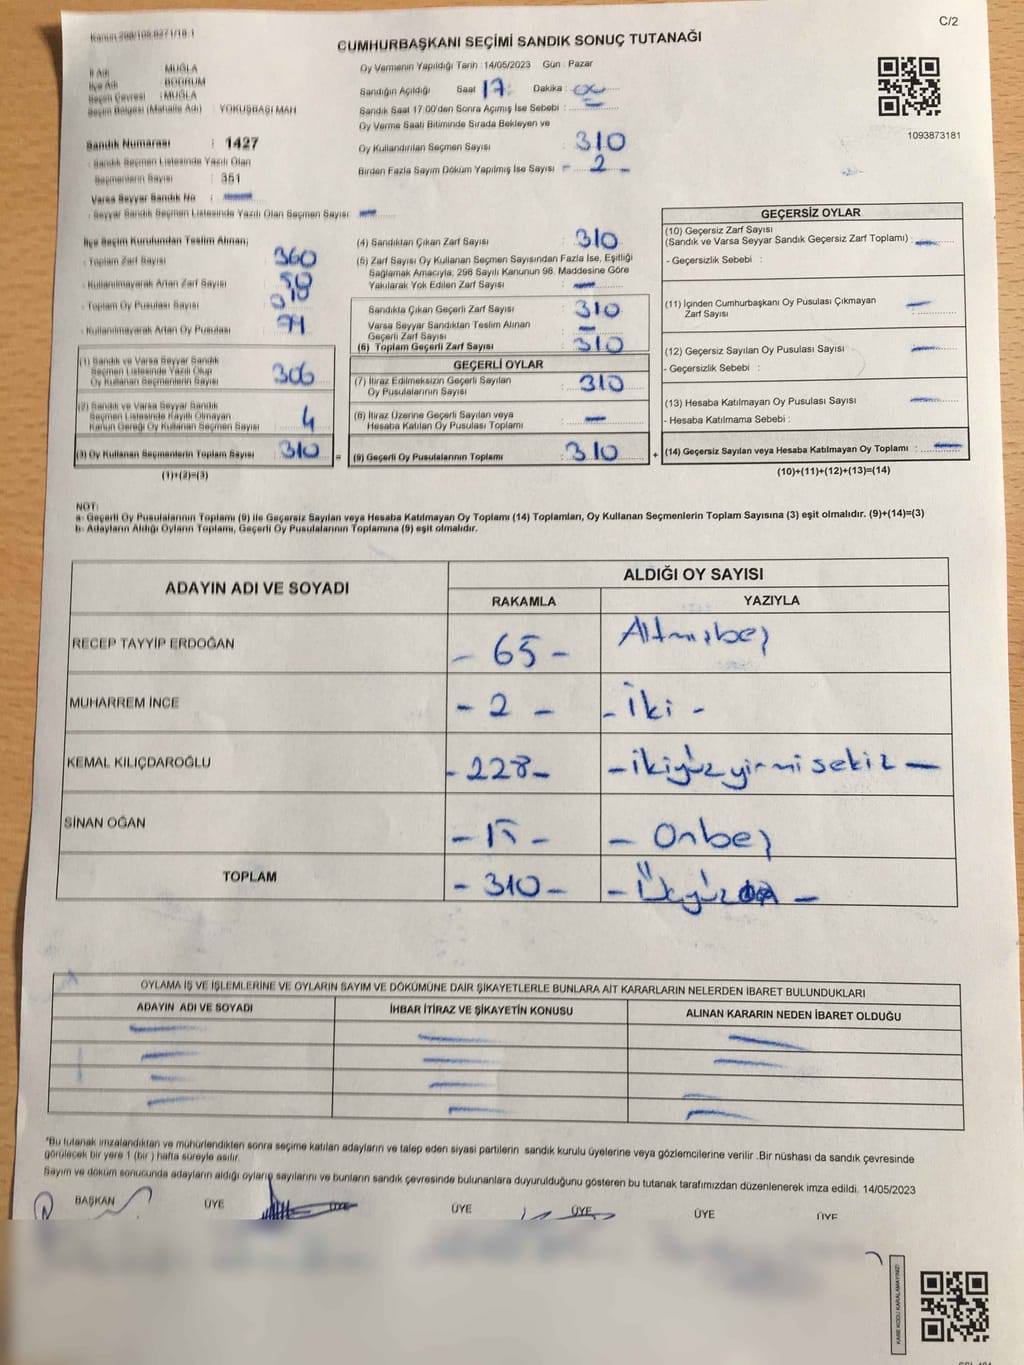 C/2
Kanun 298/109.8271/18-1
CUMHURBAŞKANI SEÇİMİ SANDIK SONUÇ TUTANAĞI
İl Adı : MUĞLA
İlçe Adı : BODRUM
Seçim Çevresi : MUĞLA
Seçim Bölgesi (Mahalle Adı) : YOKUŞBAŞI MAH
Sandık Numarası : 1427
- Sandık Seçmen Listesinde Yazılı Olan
Seçmenlerin Sayısı : 351
Varsa Seyyar Sandık No : —
- Seyyar Sandık Seçmen Listesinde Yazılı Olan Seçmen Sayısı : —
Oy Vermenin Yapıldığı Tarih : 14/05/2023 Gün : Pazar
Sandığın Açıldığı Saat 17 Dakika : 00
Sandık Saat 17:00'den Sonra Açımış İse Sebebi :
Oy Verme Saati Bitiminde Sırada Bekleyen ve
Oy Kullandırılan Seçmen Sayısı : 310
Birden Fazla Sayım Döküm Yapılmış İse Sayısı - 2 -
1093873181
İlçe Seçim Kurulundan Teslim Alınan;
- Toplam Zarf Sayısı : 360
- Kullanılmayarak Artan Zarf Sayısı : 50
- Toplam Oy Pusulası Sayısı :
- Kullanılmayarak Artan Oy Pusulası :
(1) Sandık ve Varsa Seyyar Sandık
Seçmen Listesinde Yazılı Olup
Oy Kullanan Seçmenlerin Sayısı : 306
(2) Sandık ve Varsa Seyyar Sandık
Seçmen Listesinde Kayıtlı Olmayan
Kanun Gereği Oy Kullanan Seçmen Sayısı : 4
(3) Oy Kullanan Seçmenlerin Toplam Sayısı : 310 =
(1)+(2)=(3)
(4) Sandıktan Çıkan Zarf Sayısı : 310
(5) Zarf Sayısı Oy Kullanan Seçmen Sayısından Fazla İse, Eşitliği
Sağlamak Amacıyla; 298 Sayılı Kanunun 98. Maddesine Göre
Yakılarak Yok Edilen Zarf Sayısı : —
Sandıkta Çıkan Geçerli Zarf Sayısı : 310
Varsa Seyyar Sandıktan Teslim Alınan
Geçerli Zarf Sayısı : —
(6) Toplam Geçerli Zarf Sayısı : 310
GEÇERLİ OYLAR
(7) İtiraz Edilmeksizin Geçerli Sayılan
Oy Pusulalarının Sayısı : 310
(8) İtiraz Üzerine Geçerli Sayılan veya
Hesaba Katılan Oy Pusulası Toplamı : —
(9) Geçerli Oy Pusulalarının Toplamı : 310 +
GEÇERSİZ OYLAR
(10) Geçersiz Zarf Sayısı
(Sandık ve Varsa Seyyar Sandık Geçersiz Zarf Toplamı) : —
- Geçersizlik Sebebi :
(11) İçinden Cumhurbaşkanı Oy Pusulası Çıkmayan
Zarf Sayısı : —
(12) Geçersiz Sayılan Oy Pusulası Sayısı : —
- Geçersizlik Sebebi :
(13) Hesaba Katılmayan Oy Pusulası Sayısı : —
- Hesaba Katılmama Sebebi :
(14) Geçersiz Sayılan veya Hesaba Katılmayan Oy Toplamı : —
(10)+(11)+(12)+(13)=(14)
NOT:
a- Geçerli Oy Pusulalarının Toplamı (9) ile Geçersiz Sayılan veya Hesaba Katılmayan Oy Toplamı (14) Toplamları, Oy Kullanan Seçmenlerin Toplam Sayısına (3) eşit olmalıdır. (9)+(14)=(3)
b- Adayların Aldığı Oyların Toplamı, Geçerli Oy Pusulalarının Toplamına (9) eşit olmalıdır.
ADAYIN ADI VE SOYADI ALDIĞI OY SAYISI
RAKAMLA YAZIYLA
RECEP TAYYİP ERDOĞAN - 65 - Altmışbeş
MUHARREM İNCE - 2 - - İki -
KEMAL KILIÇDAROĞLU - 228 - - ikiyüzyirmisekiz -
SİNAN OĞAN - 15 - - Onbeş
TOPLAM - 310 - - Üçyüzon -
OYLAMA İŞ VE İŞLEMLERİNE VE OYLARIN SAYIM VE DÖKÜMÜNE DAİR ŞİKAYETLERLE BUNLARA AİT KARARLARIN NELERDEN İBARET BULUNDUKLARI
ADAYIN ADI VE SOYADI İHBAR İTİRAZ VE ŞİKAYETİN KONUSU ALINAN KARARIN NEDEN İBARET OLDUĞU
*Bu tutanak imzalandıktan ve mühürlendikten sonra seçime katılan adayların ve talep eden siyasi partilerin sandık kurulu üyelerine veya gözlemcilerine verilir .Bir nüshası da sandık çevresinde
görülecek bir yere 1 (bir ) hafta süreyle asılır.
Sayım ve döküm sonucunda adayların aldığı oyların sayılarını ve bunların sandık çevresinde bulunanlara duyurulduğunu gösteren bu tutanak tarafımızdan düzenlenerek imza edildi. 14/05/2023
BAŞKAN ÜYE ÜYE ÜYE ÜYE ÜYE ÜYE
KARE KODU KARALAMAYINIZ!